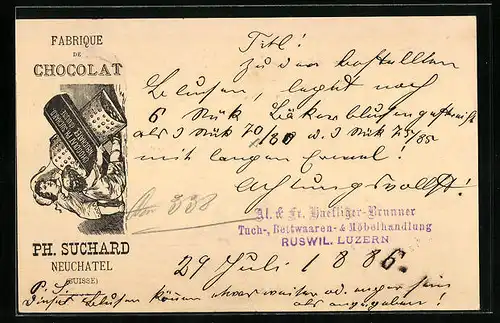 FABRIQUE
DE
CHOCOLAT
PH. SUCHARD
NEUCHATEL
(SUISSE)
Titl!
Zu den bestellten
Blusen, legt noch
6 Stück Bäkerblusen gestreift
als 3 Stück 70/80 u. 3 Stück 75/85
mit langen Ermel!
Achtungsvollst!
338
Al. & Fr. Haefliger-Brunner
Tuch-, Bettwaaren- & Möbelhandlung
RUSWIL, LUZERN
29 Juli 1886.
P.S.
Diese Blusen können etwas weiter od. enger sein
als angegeben!